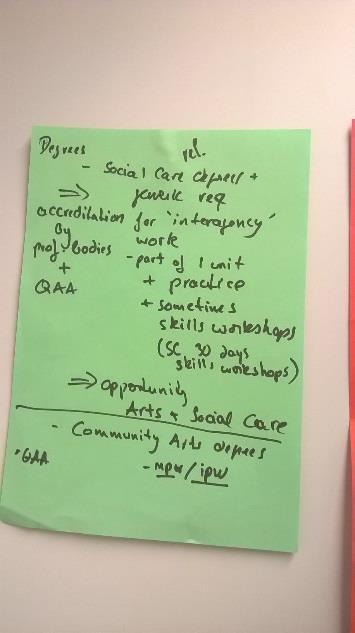 Degrees
rel.
- Social Care degrees +
⇒ req
accreditation for 'interagency'
by work
prof. bodies - part of 1 unit
+ + practice
QAA + sometimes
skills workshops
(SC 30 days
skills workshops)
⇒ opportunity
Arts + Social Care
- Community Arts degrees
• QAA - mpw/ipw